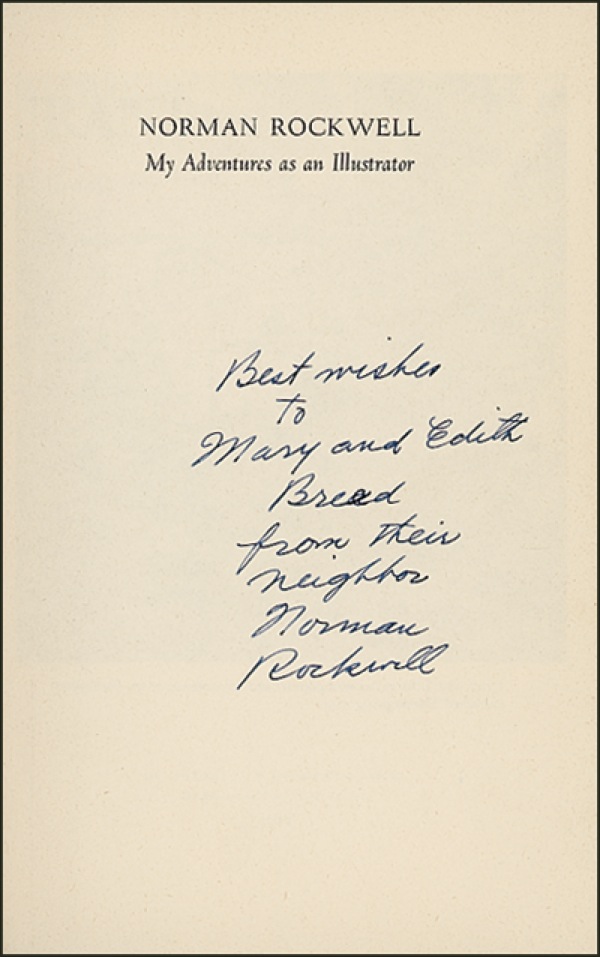 NORMAN ROCKWELL
My Adventures as an Illustrator
Best wishes
to
Mary and Edith
Bread
from their
neighbor
Norman
Rockwell